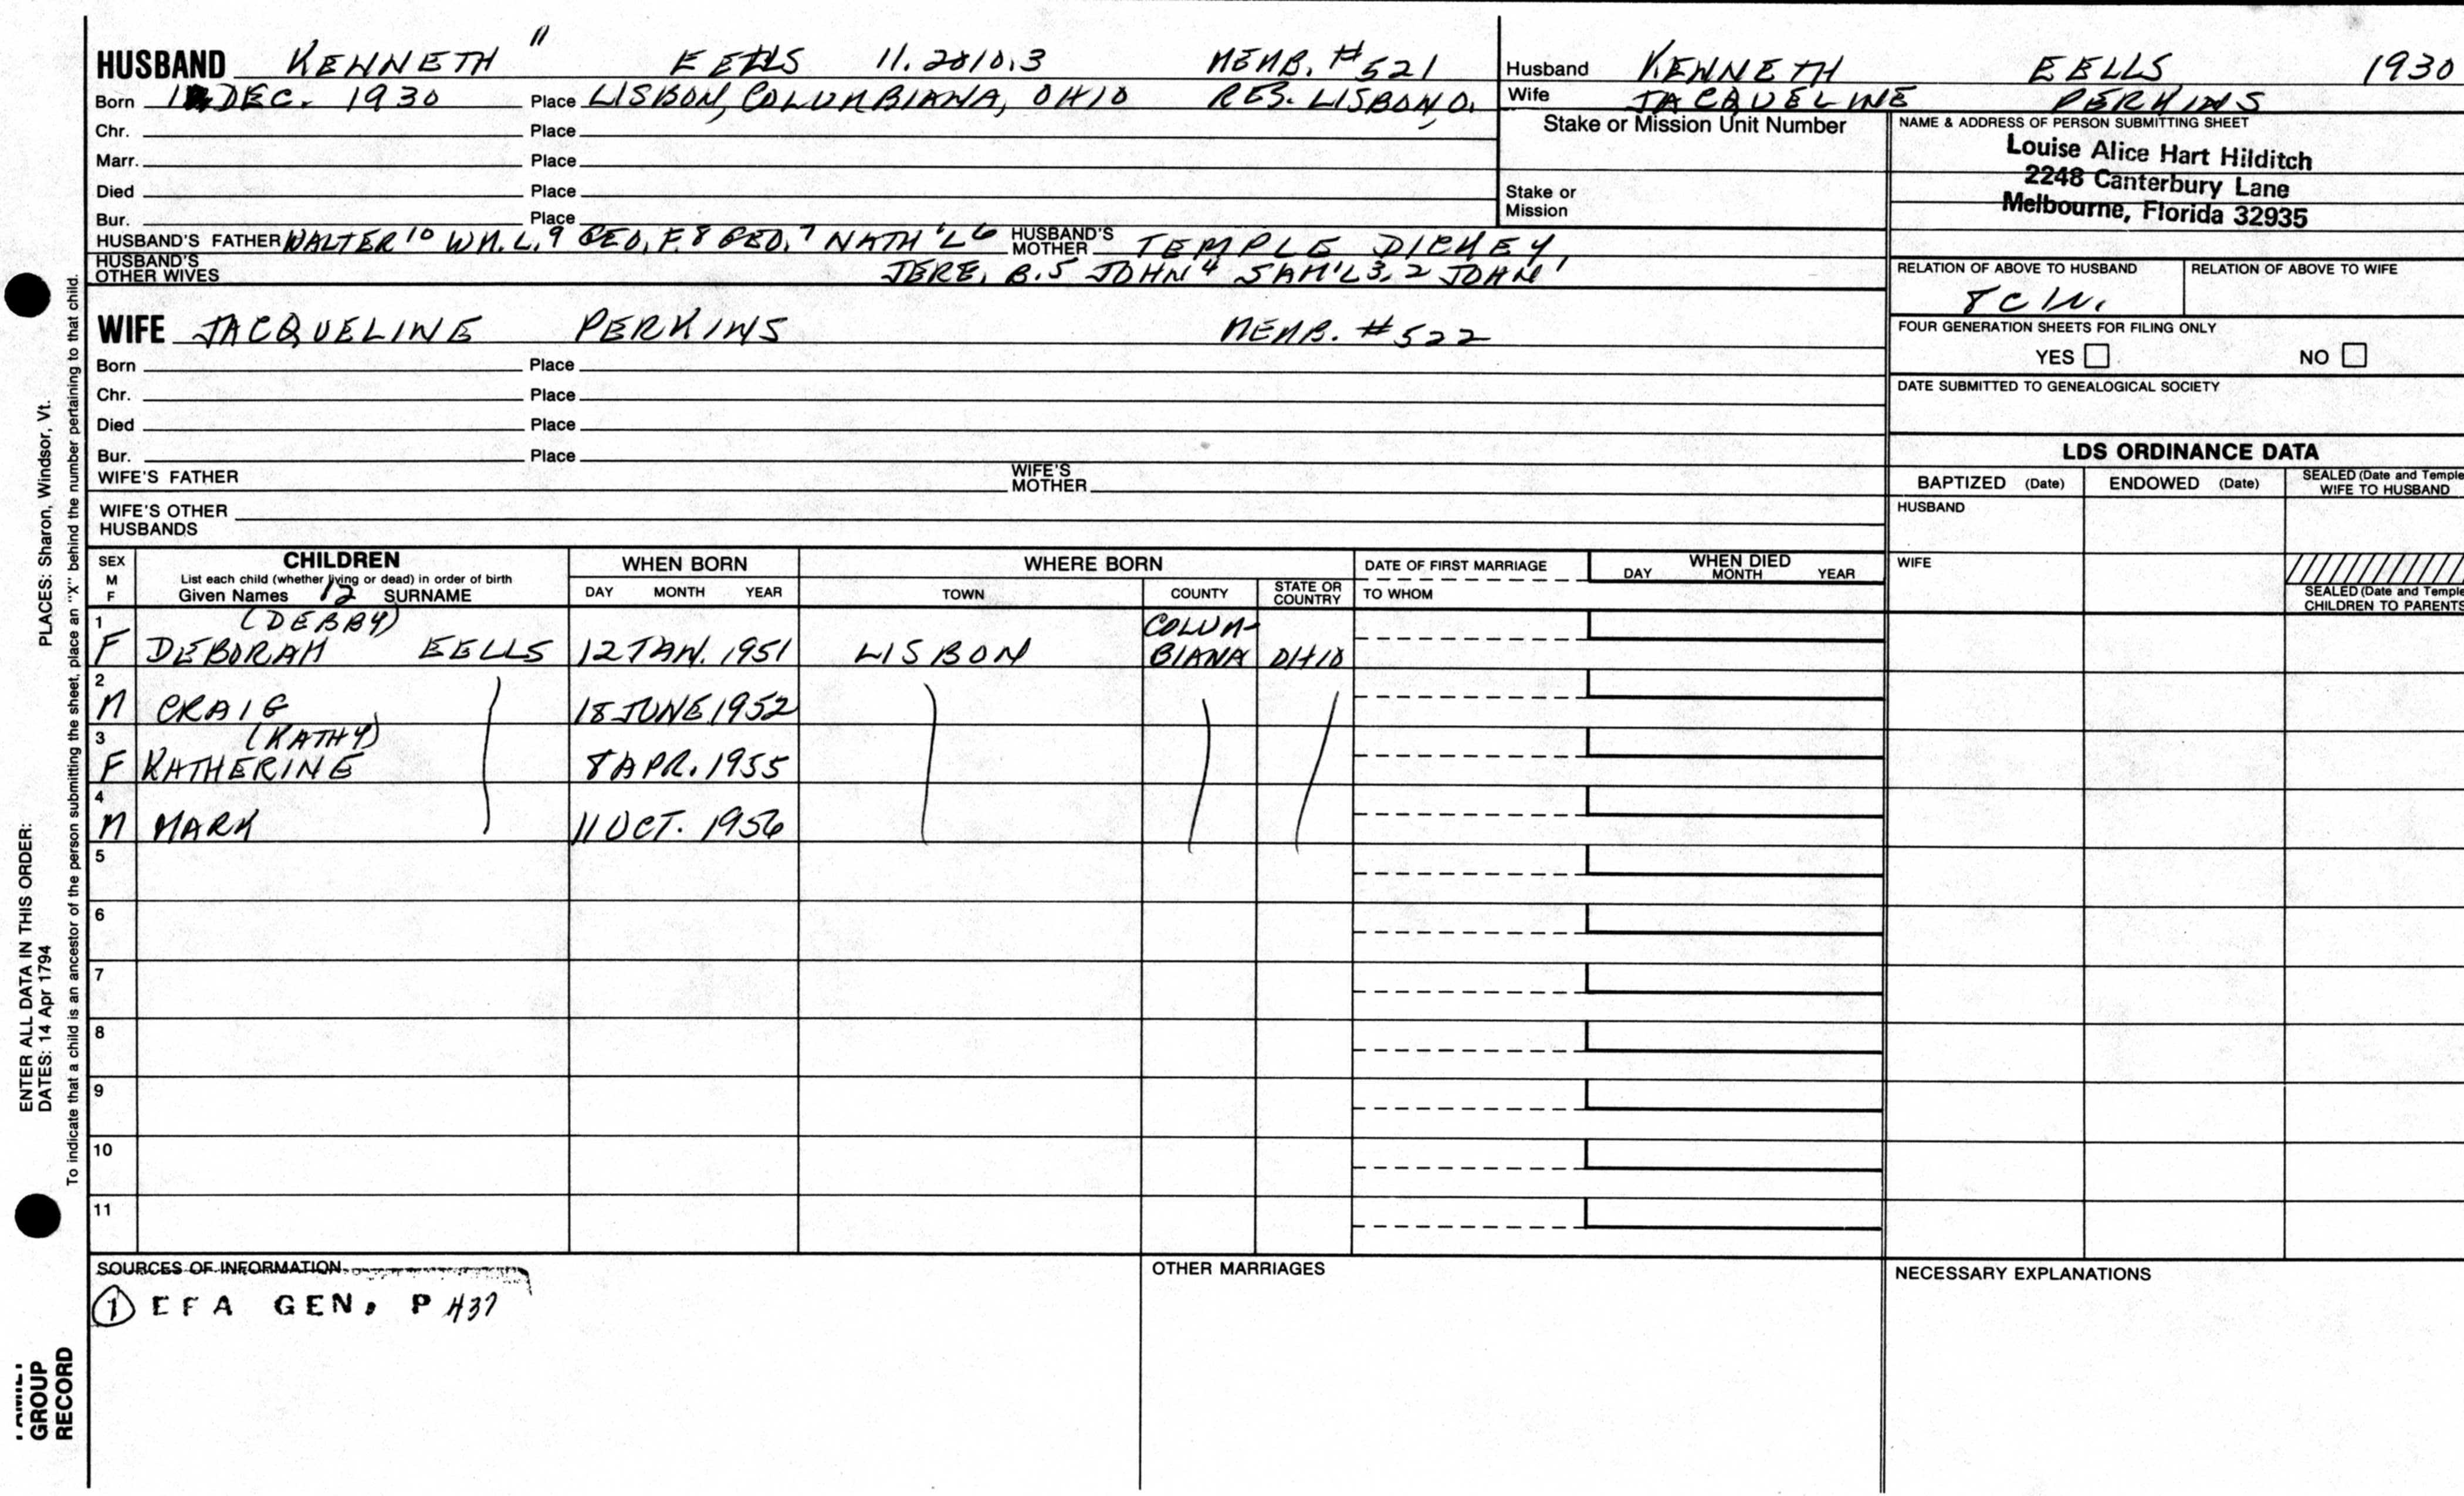 HUSBAND KENNETH 11 EELLS 11.2810.3 MEMB. #521
Born DEC. 1930 Place LISBON, COLUMBIANA, OHIO RES. LISBON, O.
Chr. Place
Marr. Place
Died Place
Bur. Place
HUSBAND'S FATHER WALTER 10 WM. L. 9 GEO. F. 8 GEO. 7 NATH'L 6 HUSBAND'S MOTHER TEMPLE DICKEY,
HUSBAND'S OTHER WIVES JERE. B. 5 JOHN 4 SAM'L 3, 2 JOHN 1
Husband KENNETH EELLS 1930
Wife JACQUELINE PERKINS
Stake or Mission Unit Number
Stake or Mission
NAME & ADDRESS OF PERSON SUBMITTING SHEET
Louise Alice Hart Hilditch
2248 Canterbury Lane
Melbourne, Florida 32935
RELATION OF ABOVE TO HUSBAND RELATION OF ABOVE TO WIFE
FOUR GENERATION SHEETS FOR FILING ONLY
YES NO
DATE SUBMITTED TO GENEALOGICAL SOCIETY
WIFE JACQUELINE PERKINS MEMB. #522
Born Place
Chr. Place
Died Place
Bur. Place
WIFE'S FATHER WIFE'S MOTHER
WIFE'S OTHER HUSBANDS
LDS ORDINANCE DATA
BAPTIZED (Date) ENDOWED (Date) SEALED (Date and Temple
WIFE TO HUSBAND
HUSBAND
WIFE
SEALED (Date and Temple
CHILDREN TO PARENTS
SEX M F
CHILDREN
List each child (whether living or dead) in order of birth
Given Names 12 SURNAME
WHEN BORN
DAY MONTH YEAR
WHERE BORN
TOWN COUNTY STATE OR COUNTRY
DATE OF FIRST MARRIAGE
TO WHOM
WHEN DIED
DAY MONTH YEAR
1 (DEBBY) COLUM-
F DEBORAH EELLS 12 JAN. 1951 LISBON BIANA OHIO
2
M CRAIG 18 JUNE 1952
3 (KATHY)
F KATHERINE 8 APR. 1955
4
M MARK 11 OCT. 1956
5
6
7
8
9
10
11
SOURCES OF INFORMATION
1 EFA GEN. P 437
OTHER MARRIAGES
NECESSARY EXPLANATIONS
ENTER ALL DATA IN THIS ORDER:
DATES: 14 Apr 1794 PLACES: Sharon, Windsor, Vt.
To indicate that a child is an ancestor of the person submitting the sheet, place an "X" behind the number pertaining to that child.
FAMILY
GROUP
RECORD